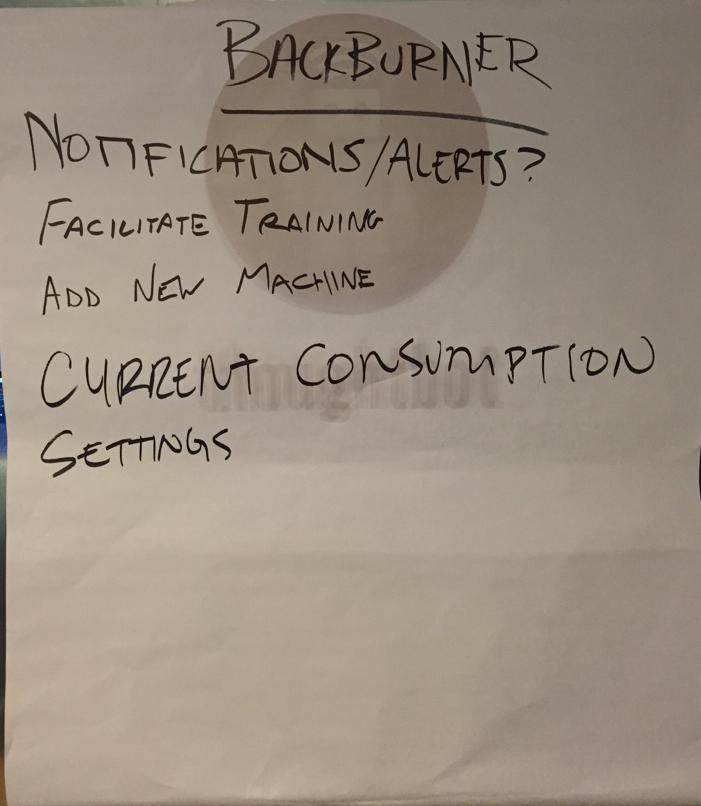 BACKBURNER
NOTIFICATIONS/ALERTS?
FACILITATE TRAINING
ADD NEW MACHINE
CURRENT CONSUMPTION
SETTINGS
thoughtbot